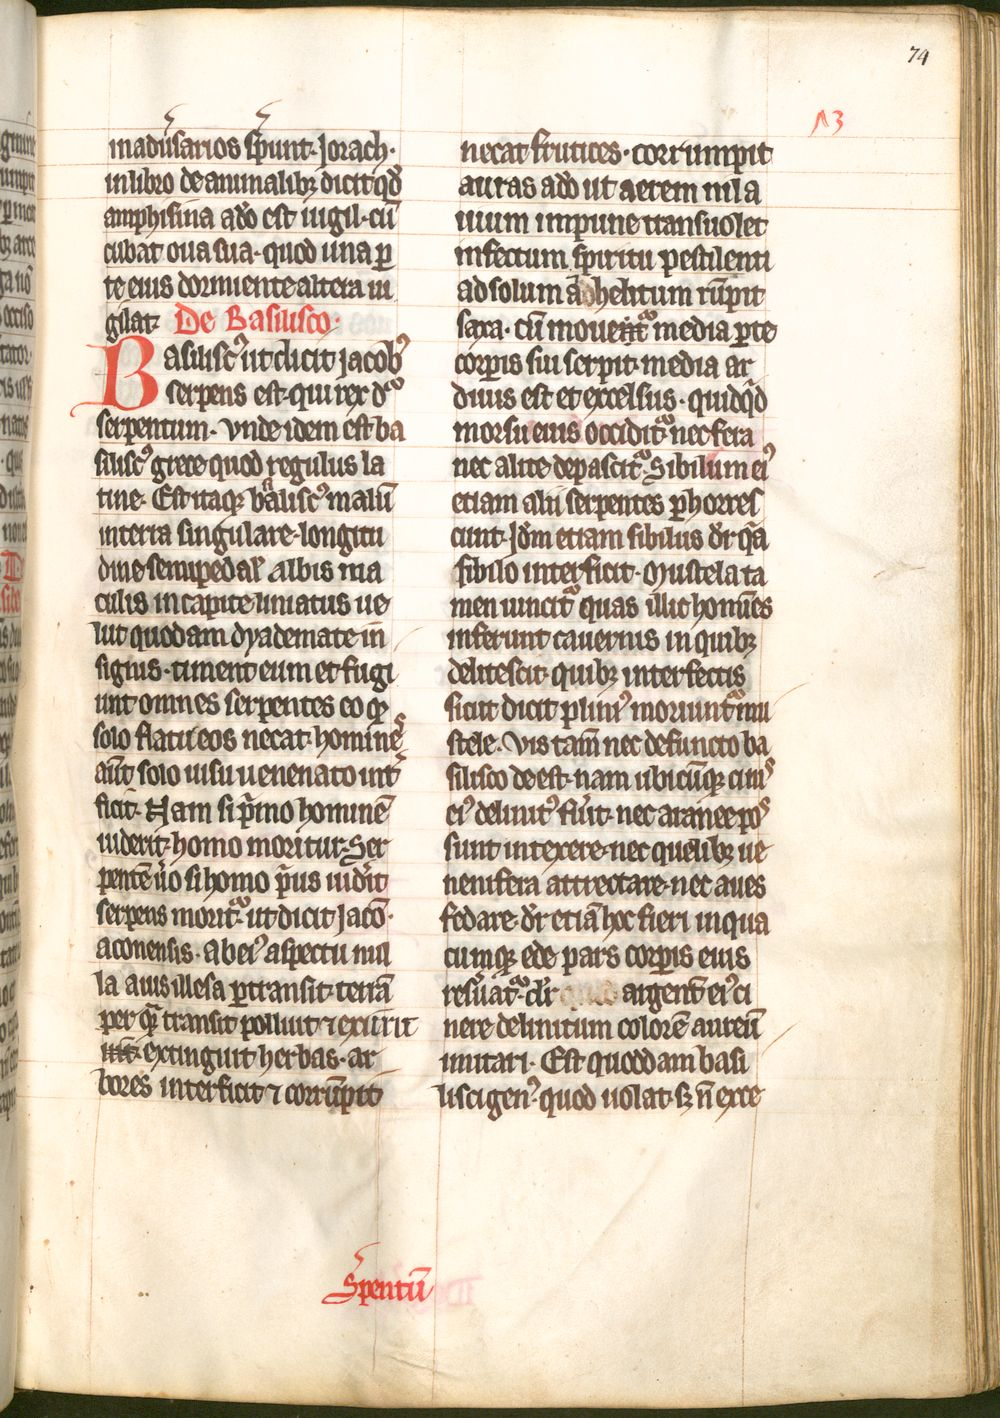 74
13
maduͥsarios sp̄unt· Jorach·
in libro de animalibꝫ dicit qd̓
amphisina ado est uigil· cū
cubat oua sua· quod una ꝑ
te eius dormiente altera ui
gilat· De Basilisco·
Basiliscꝰ ut dicit jacobꝰ
serpens est· qui rex dr̄
serpentum· vnde idem est ba
siliscꝰ grece quod regulus la
tine· Est itaqꝫ basiliscꝰ malū
in terra singulare· longitu
dine semipedal̓ albis ma
culis in capite liniatus ue
lut quodam dyademate in
signis· timent eum et fugi
unt omnes serpentes eo qꝫ
solo flatu eos necat· homines
aūt solo uisu uenenato int̓
ficit· Nam si p̄mo hominē
uiderit· homo moritur· Ser
pentē u̓o si homo p̄us uid̓it
serpens moritᷣ· ut dicit Jaco·
aconensis· ab eiꝰ aspectu nul
la auis illesa ꝑtransit· terrā
per quā transit polluit ⁊ exurit
extinguit herbas· ar
bores interficit ⁊ corrūpit
necat frutices· corrumpit
auras ado ut aerem nil a
uium impune transuolet
infectum spiritu pestilenti
ad solum ad helitum rūpit
saxa· cū mouetᷣ media ꝑte
corꝑis sui serpit· media ar
duus est et excelsus· quidqd̓
morsu eius occiditᷣ nec fera
nec alite depascitᷣ· Sibilum eiꝰ
etiam alii serpentes ꝑhorres
cunt· Jdem etiam sibilus dr̄ qa
sibilo interficit· Mustela ta
men uincitᷣ quas illic homines
inferunt cauernis in quibꝫ
delitescit· quibꝫ interfectis
sicut dicit pliniꝰ moriuntᷣ mu
stele· Vis tam̄ nec defuncto ba
silisco deest· nam ubicūqꝫ cinis
eiꝰ delinitꝰ fu̓it· nec aranee pos
sunt intexere· nec quelibꝫ ue
nenifera attrectare· nec aues
fedare· dr̄ etiā hoc fieri in qua
cumqꝫ ede pars corꝑis eius
resuatᷣ· dr̄ argent̄ eiꝰ ci
nere delinitum colorē aureū
imitari· Est quoddam basi
lisci genꝰ· quod uolat· sꝫ n̄ exce
Spentū